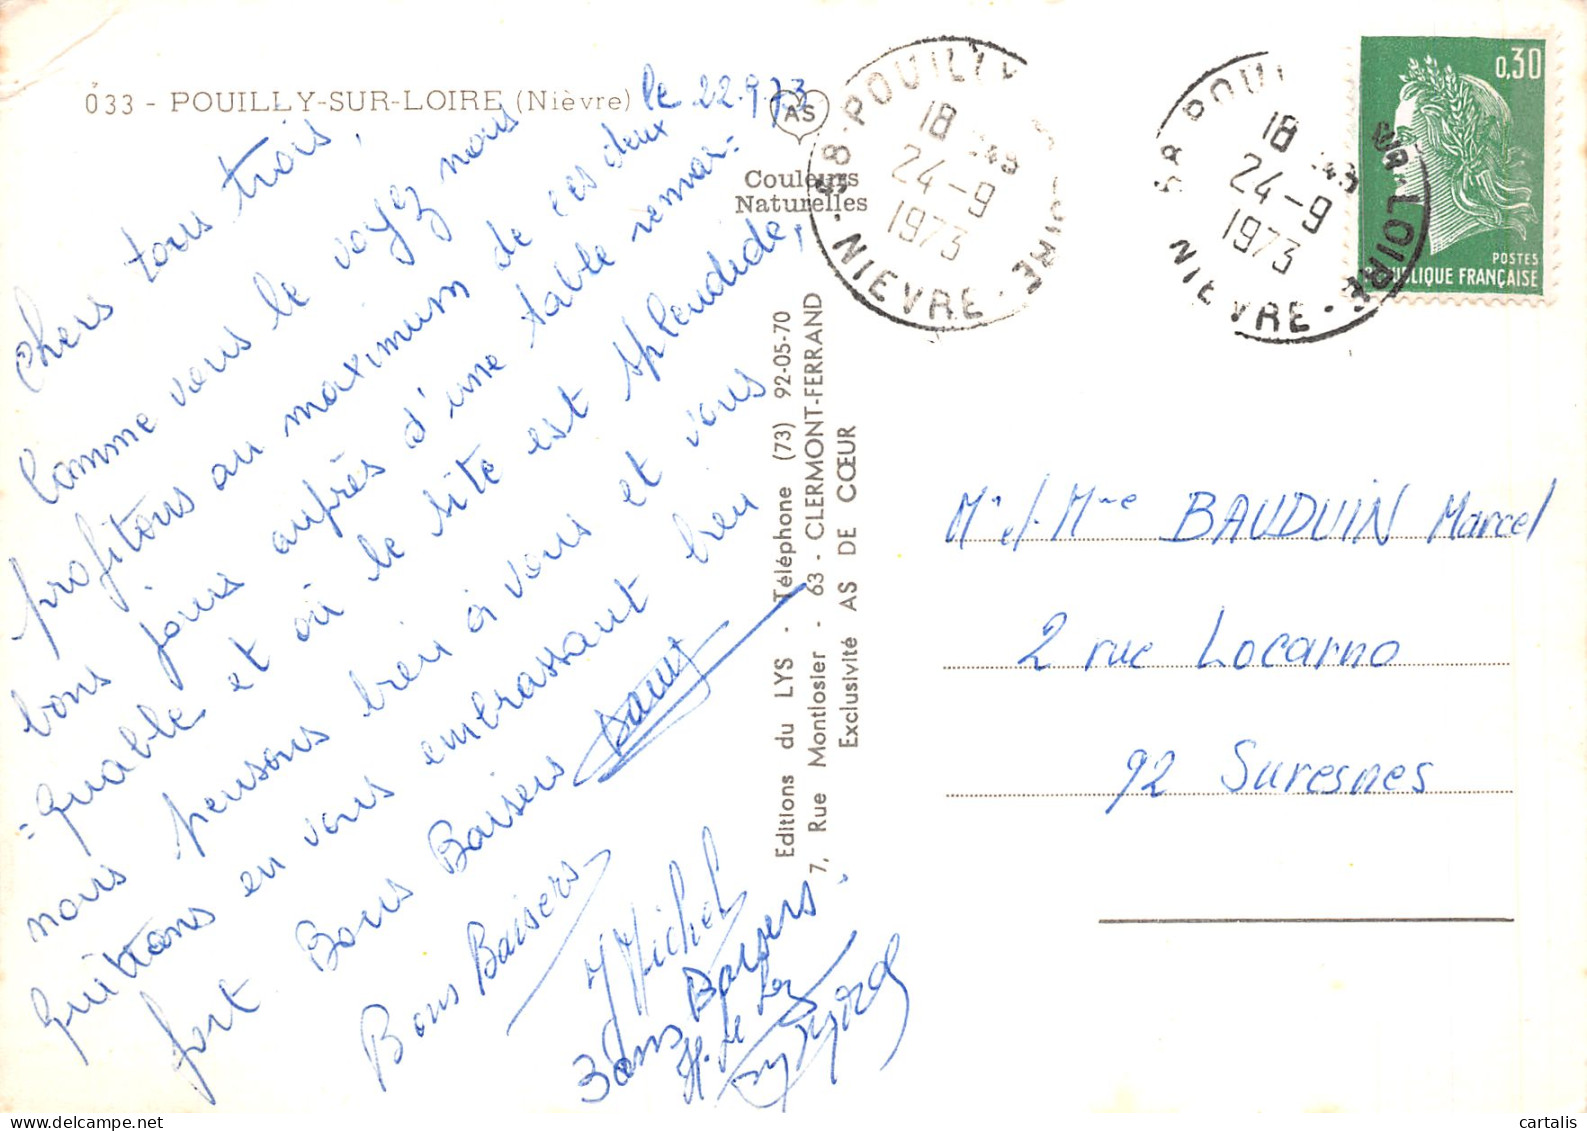 033 - POUILLY-SUR-LOIRE (Nièvre)
le 22.9.73
AS
Couleurs
Naturelles
Chers tous trois,
Comme vous le voyez nous
profitons au maximum de ces deux
bons jours auprès d'une table remar=
=quable et où le site est splendide,
nous pensons bien à vous et vous
quittons en vous embrassant bien
fort. Bons Baisers
Bons Baisers
Michel
Bons Baisers.
Editions du LYS - Téléphone (73) 92-05-70
7, Rue Montlosier - 63 - CLERMONT-FERRAND
Exclusivité AS DE CŒUR
58 - POUILLY
18
24-9
1973
NIEVRE
58 POUI
SUR-LOIRE
18
24-9
1973
NIEVRE
0,30
POSTES
RÉPUBLIQUE FRANÇAISE
Mr et Mme BAUDUIN Marcel
2 rue Locarno
92 Suresnes
cartalis